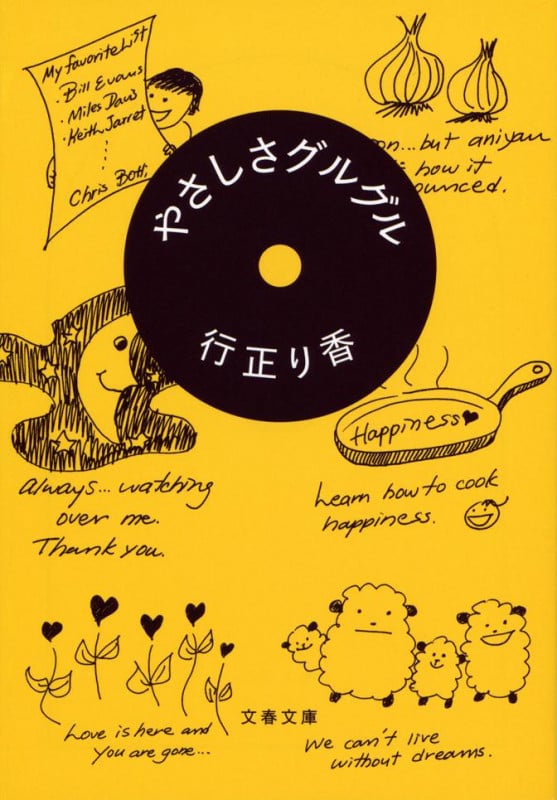 My favorite List
・Bill Evans
・Miles Davis
・Keith Jarret
Chris Botti
on... but aniyan
how it
ounced.
やさしさグルグル
行正り香
Happiness
always... watching
over me.
Thank you.
Learn how to cook
happiness.
Love is here and
you are gone...
文春文庫
We can't live
without dreams.